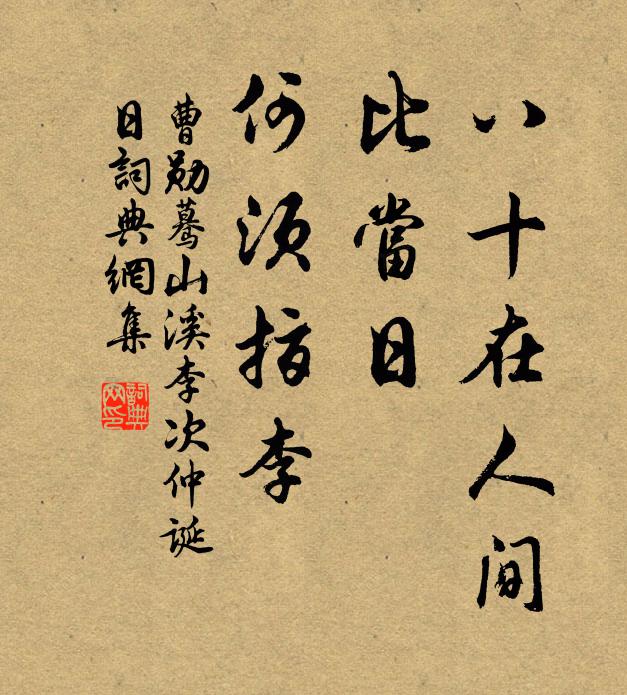 八十在人间
比當日
何須指李
曹勛蓦山溪李次仲誕
日詞典網集
詞典
网印